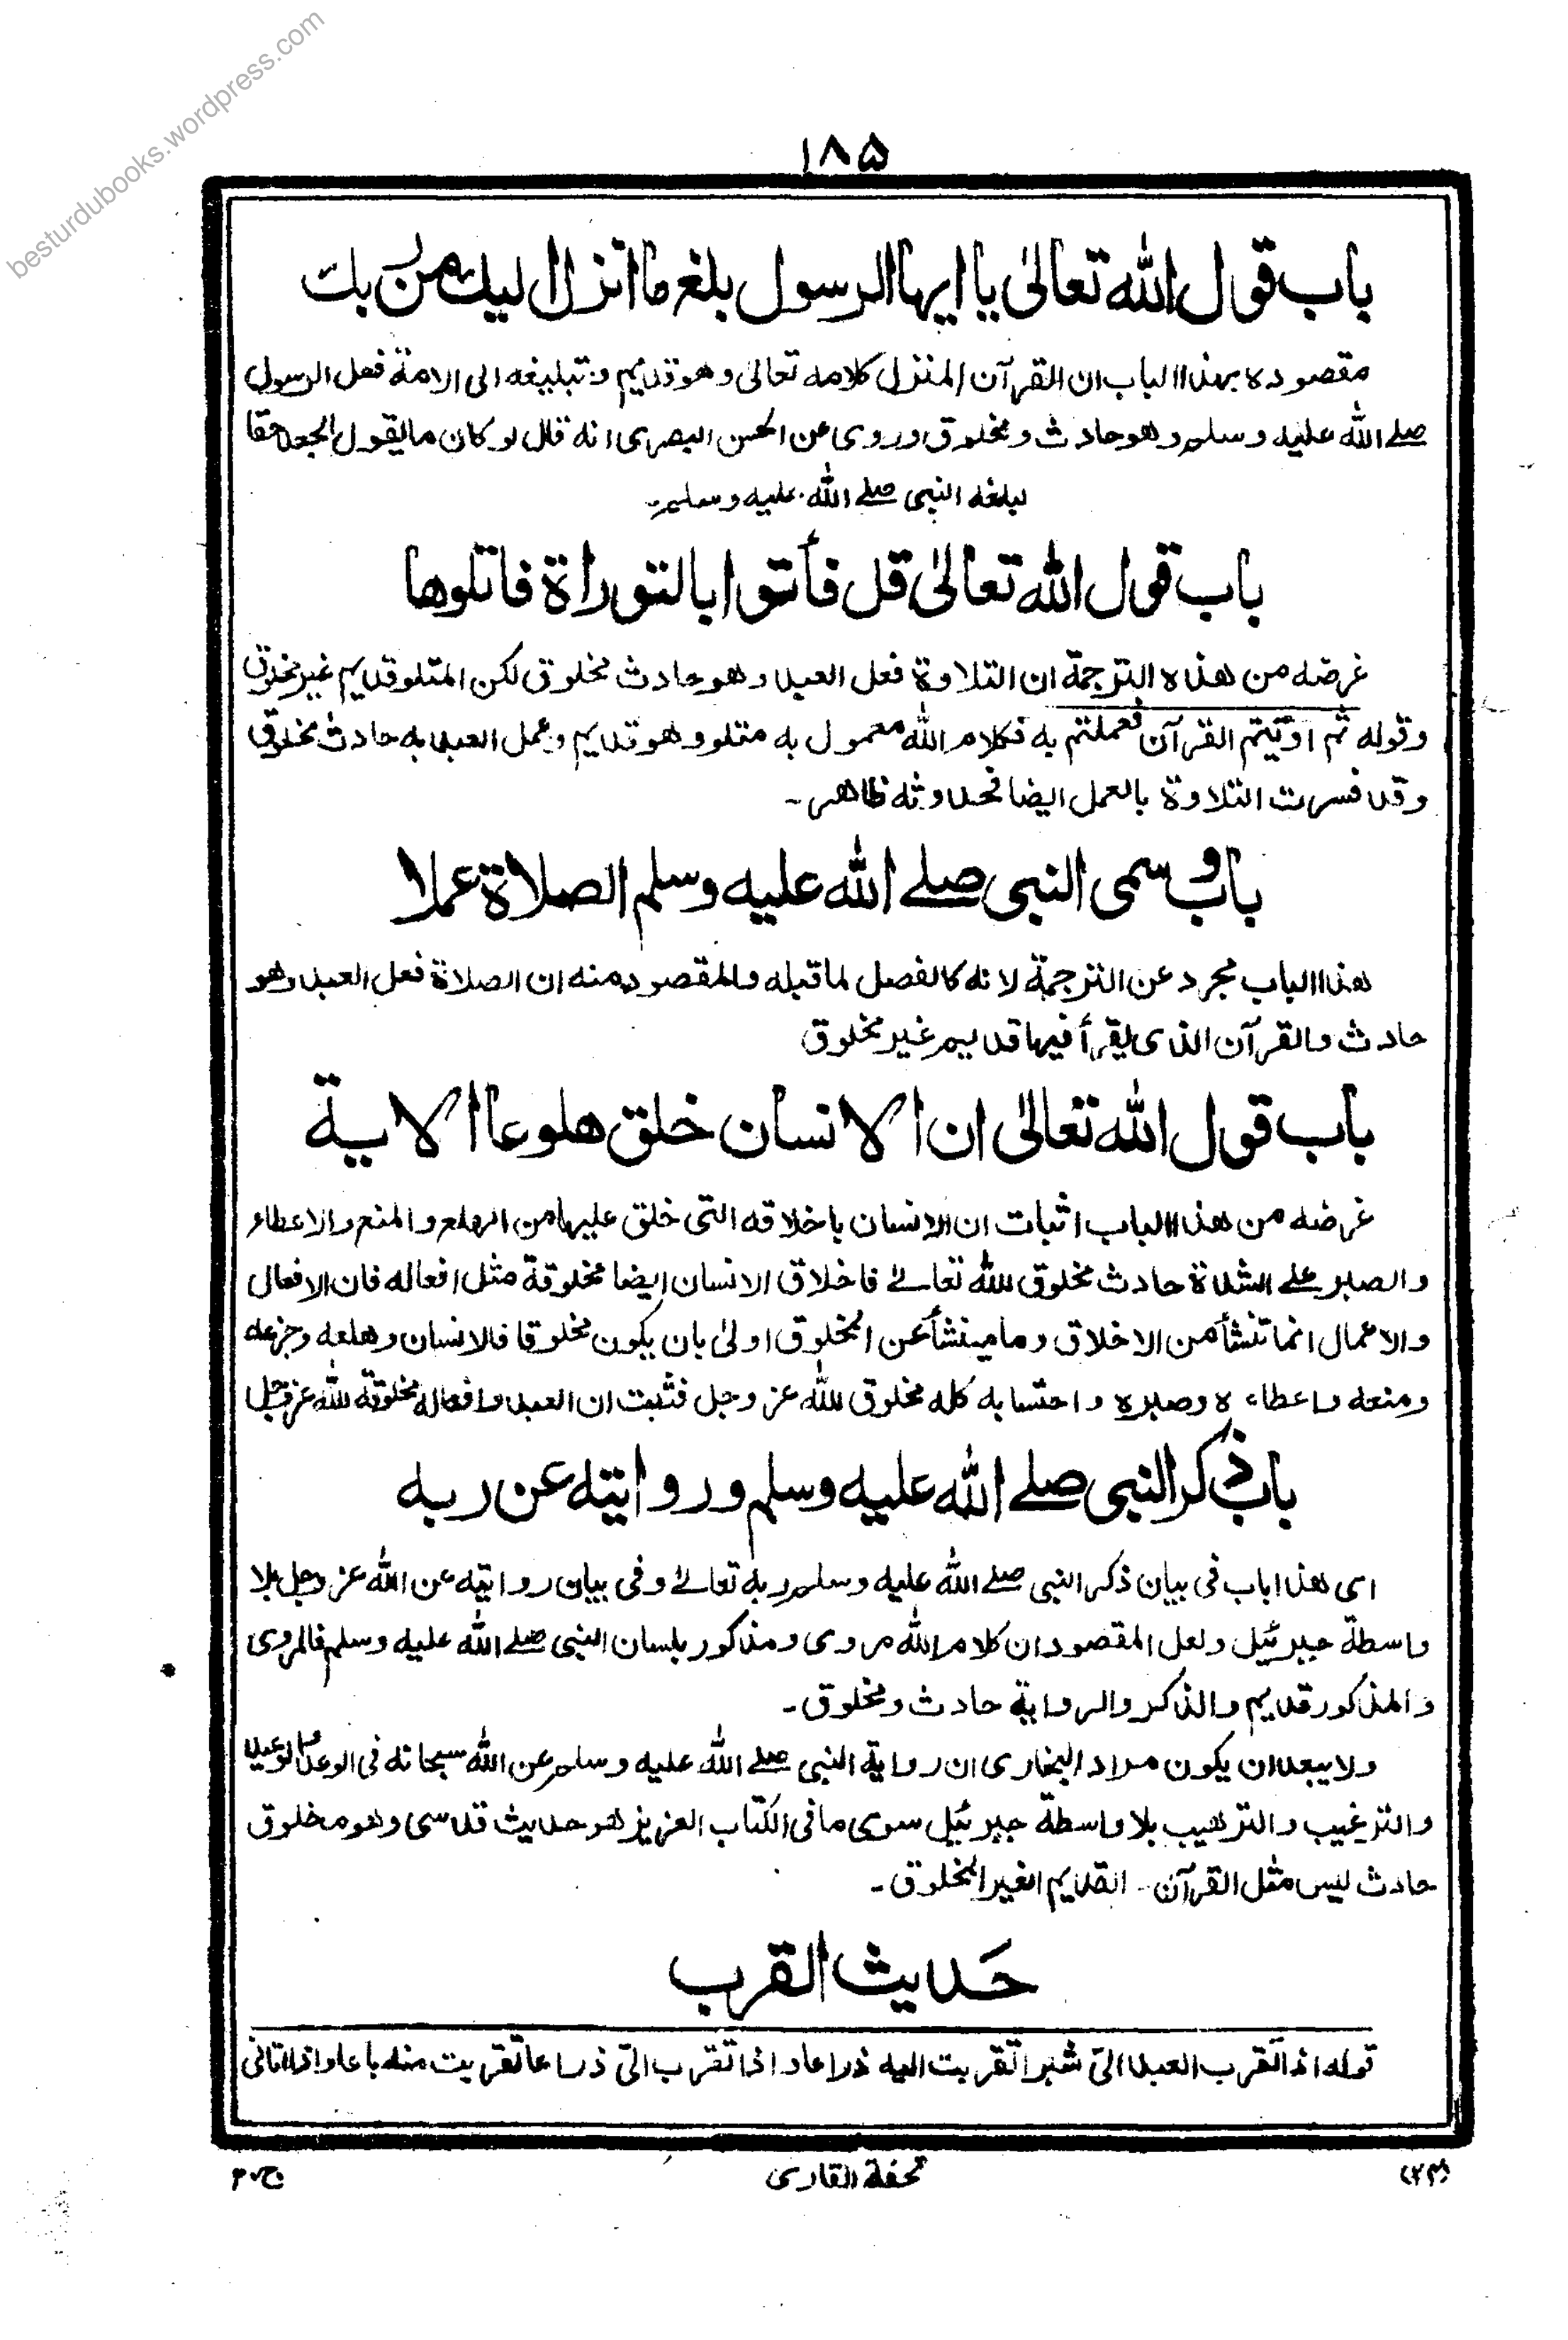 besturdubooks.wordpress.com
١٨۵
باب قول الله تعالىٰ يا ايها الرسول بلغ ما انزل اليك من ربك
مقصوده بهذا الباب ان القرآن المنزل كلامه تعالى وهو قديم وتبليغه الى الامة فعل الرسول
صلے الله عليه وسلم وهو حادث ومخلوق وروى عن الحسن البصرى انه قال لو كان ما يقول الجعد حقا
لبلغه النبى صلے الله عليه وسلم۔
باب قول الله تعالىٰ قل فأتوا بالتوراة فاتلوها
غرضه من هذه الترجمة ان التلاوة فعل العبد وهو حادث مخلوق لكن المتلو قديم غير مخلوق
وقوله ثم اوتيتم القرآن فعملتم به فكلام الله معمول به متلو وهو قديم وعمل العبد به حادث مخلوق
وقد فسرت التلاوة بالعمل ايضا فحدوثه ظاهر۔
باب وسمى النبى صلے الله عليه وسلم الصلاة عملا
هذا الباب مجرد عن الترجمة لانه كالفصل لما قبله والمقصود منه ان الصلاة فعل العبد وهو
حادث والقرآن الذى يقرأ فيها قديم غير مخلوق
باب قول الله تعالىٰ ان الانسان خلق هلوعا الاية
غرضه من هذا الباب اثبات ان الانسان باخلاقه التى خلق عليها من الهلع والمنع والاعطاء
والصبر علے الشدة حادث مخلوق لله تعالےٰ فاخلاق الانسان ايضا مخلوقة مثل افعاله فان الافعال
والاعمال انما تنشأ من الاخلاق وما ينشأ عن المخلوق اولىٰ بان يكون مخلوقا فالانسان وهلعه وجزعه
ومنعه واعطاءه وصبره واحتسابه كله مخلوق لله عز وجل فثبت ان العبد وافعاله مخلوقة لله عز وجل
باب ذكر النبى صلے الله عليه وسلم وروايته عن ربه
اى هذا باب فى بيان ذكر النبى صلے الله عليه وسلم ربه تعالےٰ وفى بيان روايته عن الله عز وجل بلا
واسطة جبرئيل ولعل المقصود ان كلام الله مروى ومذكور بلسان النبى صلے الله عليه وسلم فالمروى
والمذكور قديم والذكر والرواية حادث ومخلوق۔
ولا يبعد ان يكون مراد البخارى ان رواية النبى صلے الله عليه وسلم عن الله سبحانه فى الوعد والوعيد
والترغيب والترهيب بلا واسطة جبرئيل سوى ما فى الكتاب العزيز هو حديث قدسى وهو مخلوق
حادث ليس مثل القرآن۔ القديم الغير المخلوق۔
حَديث القرب
قوله اذا تقرب العبد الىّ شبرا تقربت اليه ذراعا واذا تقرب الىّ ذراعا تقربت منه باعا واذا اتانى
(٢٣) تحفة القارى ج٢٠